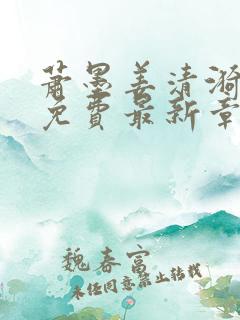 萧墨姜清漪
免费最新章
魏春富
未经同意禁止转载